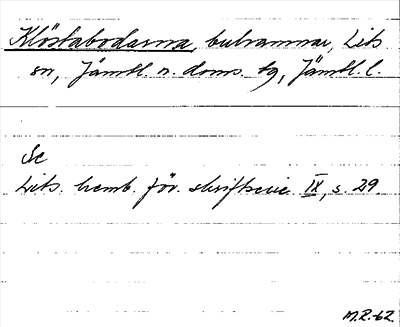 Klöstabodarna, bulrammar, Lits
sn, Jämtl. n. doms. tg, Jämtl. l.
Se
Lits. hemb. för. skriftserie IX, s. 29.
M.R.-62.